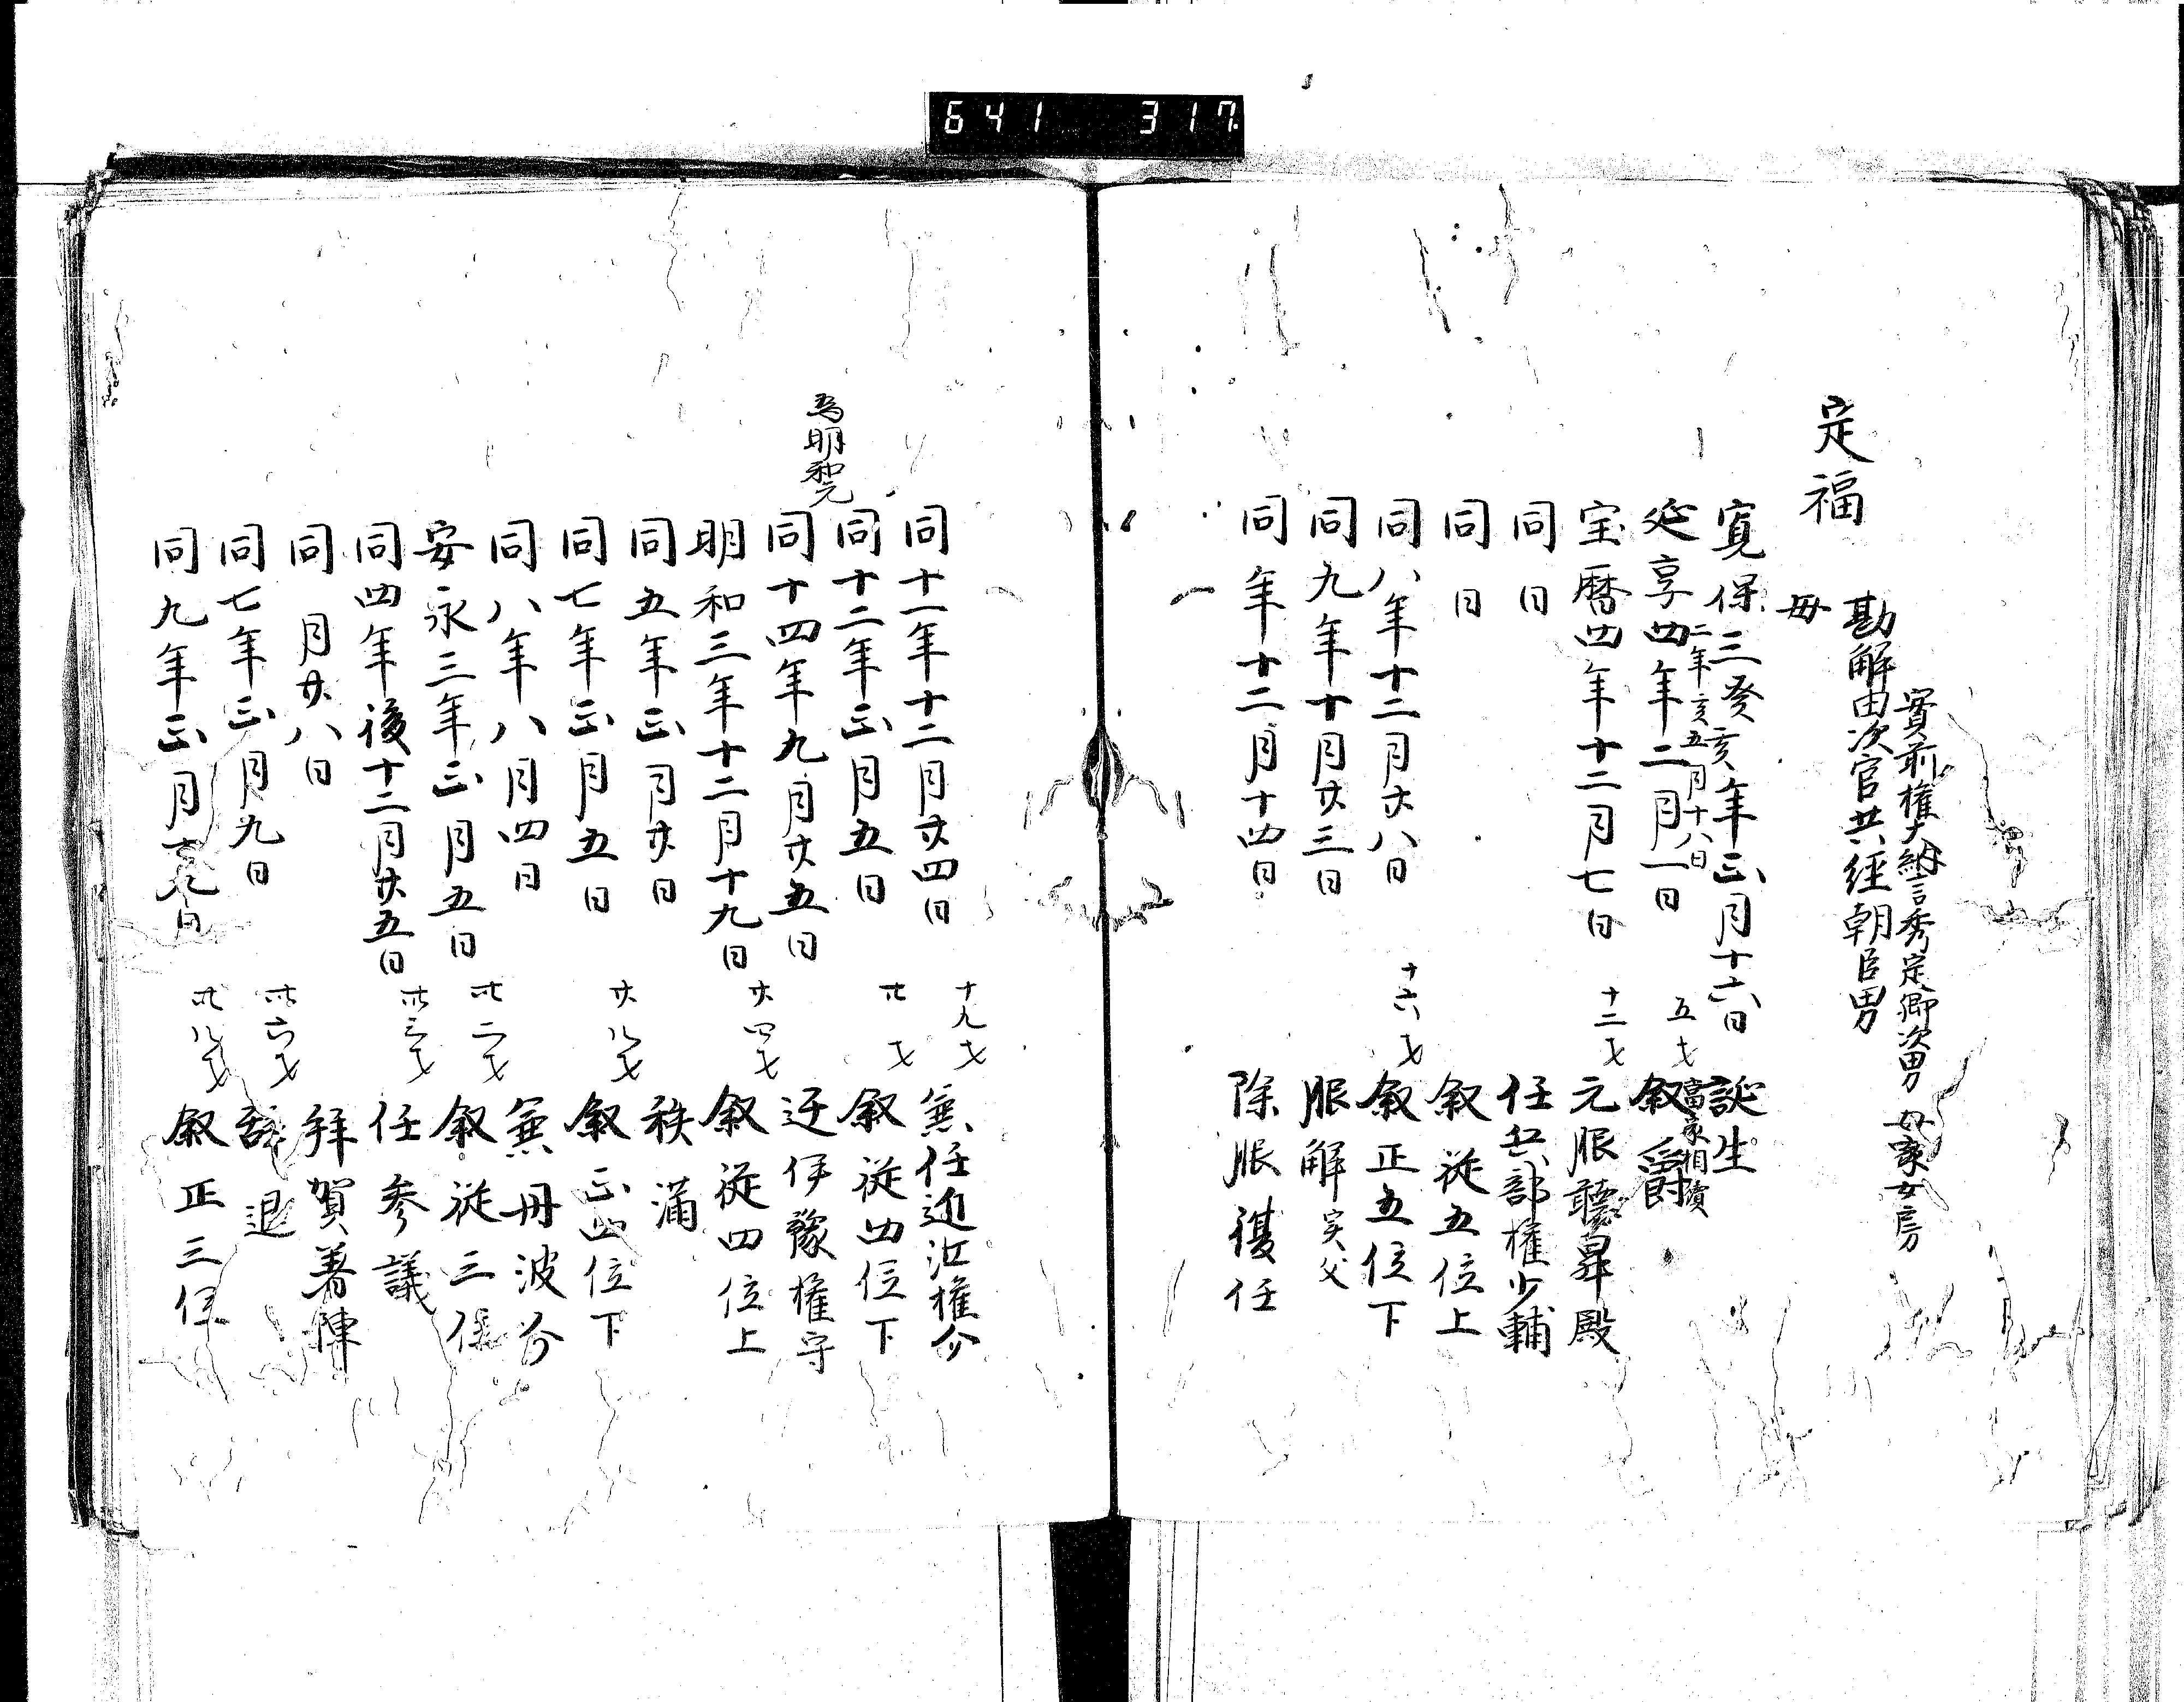 641 317.
定福
實前権大納言秀定卿次男 母家女房
勘解由次官共経朝臣男
母
寛保三癸亥年正月十六日 誕生
二年亥五月十八日 富家相續
延享四年二月一日 五才 叙爵
宝暦四年十二月七日 十二才 元服聴昇殿
同日 任兵部権少輔
同日 叙従五位上
同八年十二月廿八日 十六才 叙正五位下
同九年十月廿三日 服解実父
同年十二月十四日 除服復任
同十一年十二月廿四日 十九才 兼任近江権介
同十二年正月五日 廿才 叙従四位下
為明和元
同十四年九月廿五日 迁伊豫権守
明和三年十二月十九日 廿四才 叙従四位上
同五年正月廿日 秩満
同七年正月五日 廿八才 叙正四位下
同八年八月四日 兼丹波介
安永三年正月五日 卅二才 叙従三位
同四年後十二月廿五日 卅三才 任参議
同月廿八日 拜賀着陣
同七年正月九日 卅六才 辞退
同九年正月十九日 卅八才 叙正三位